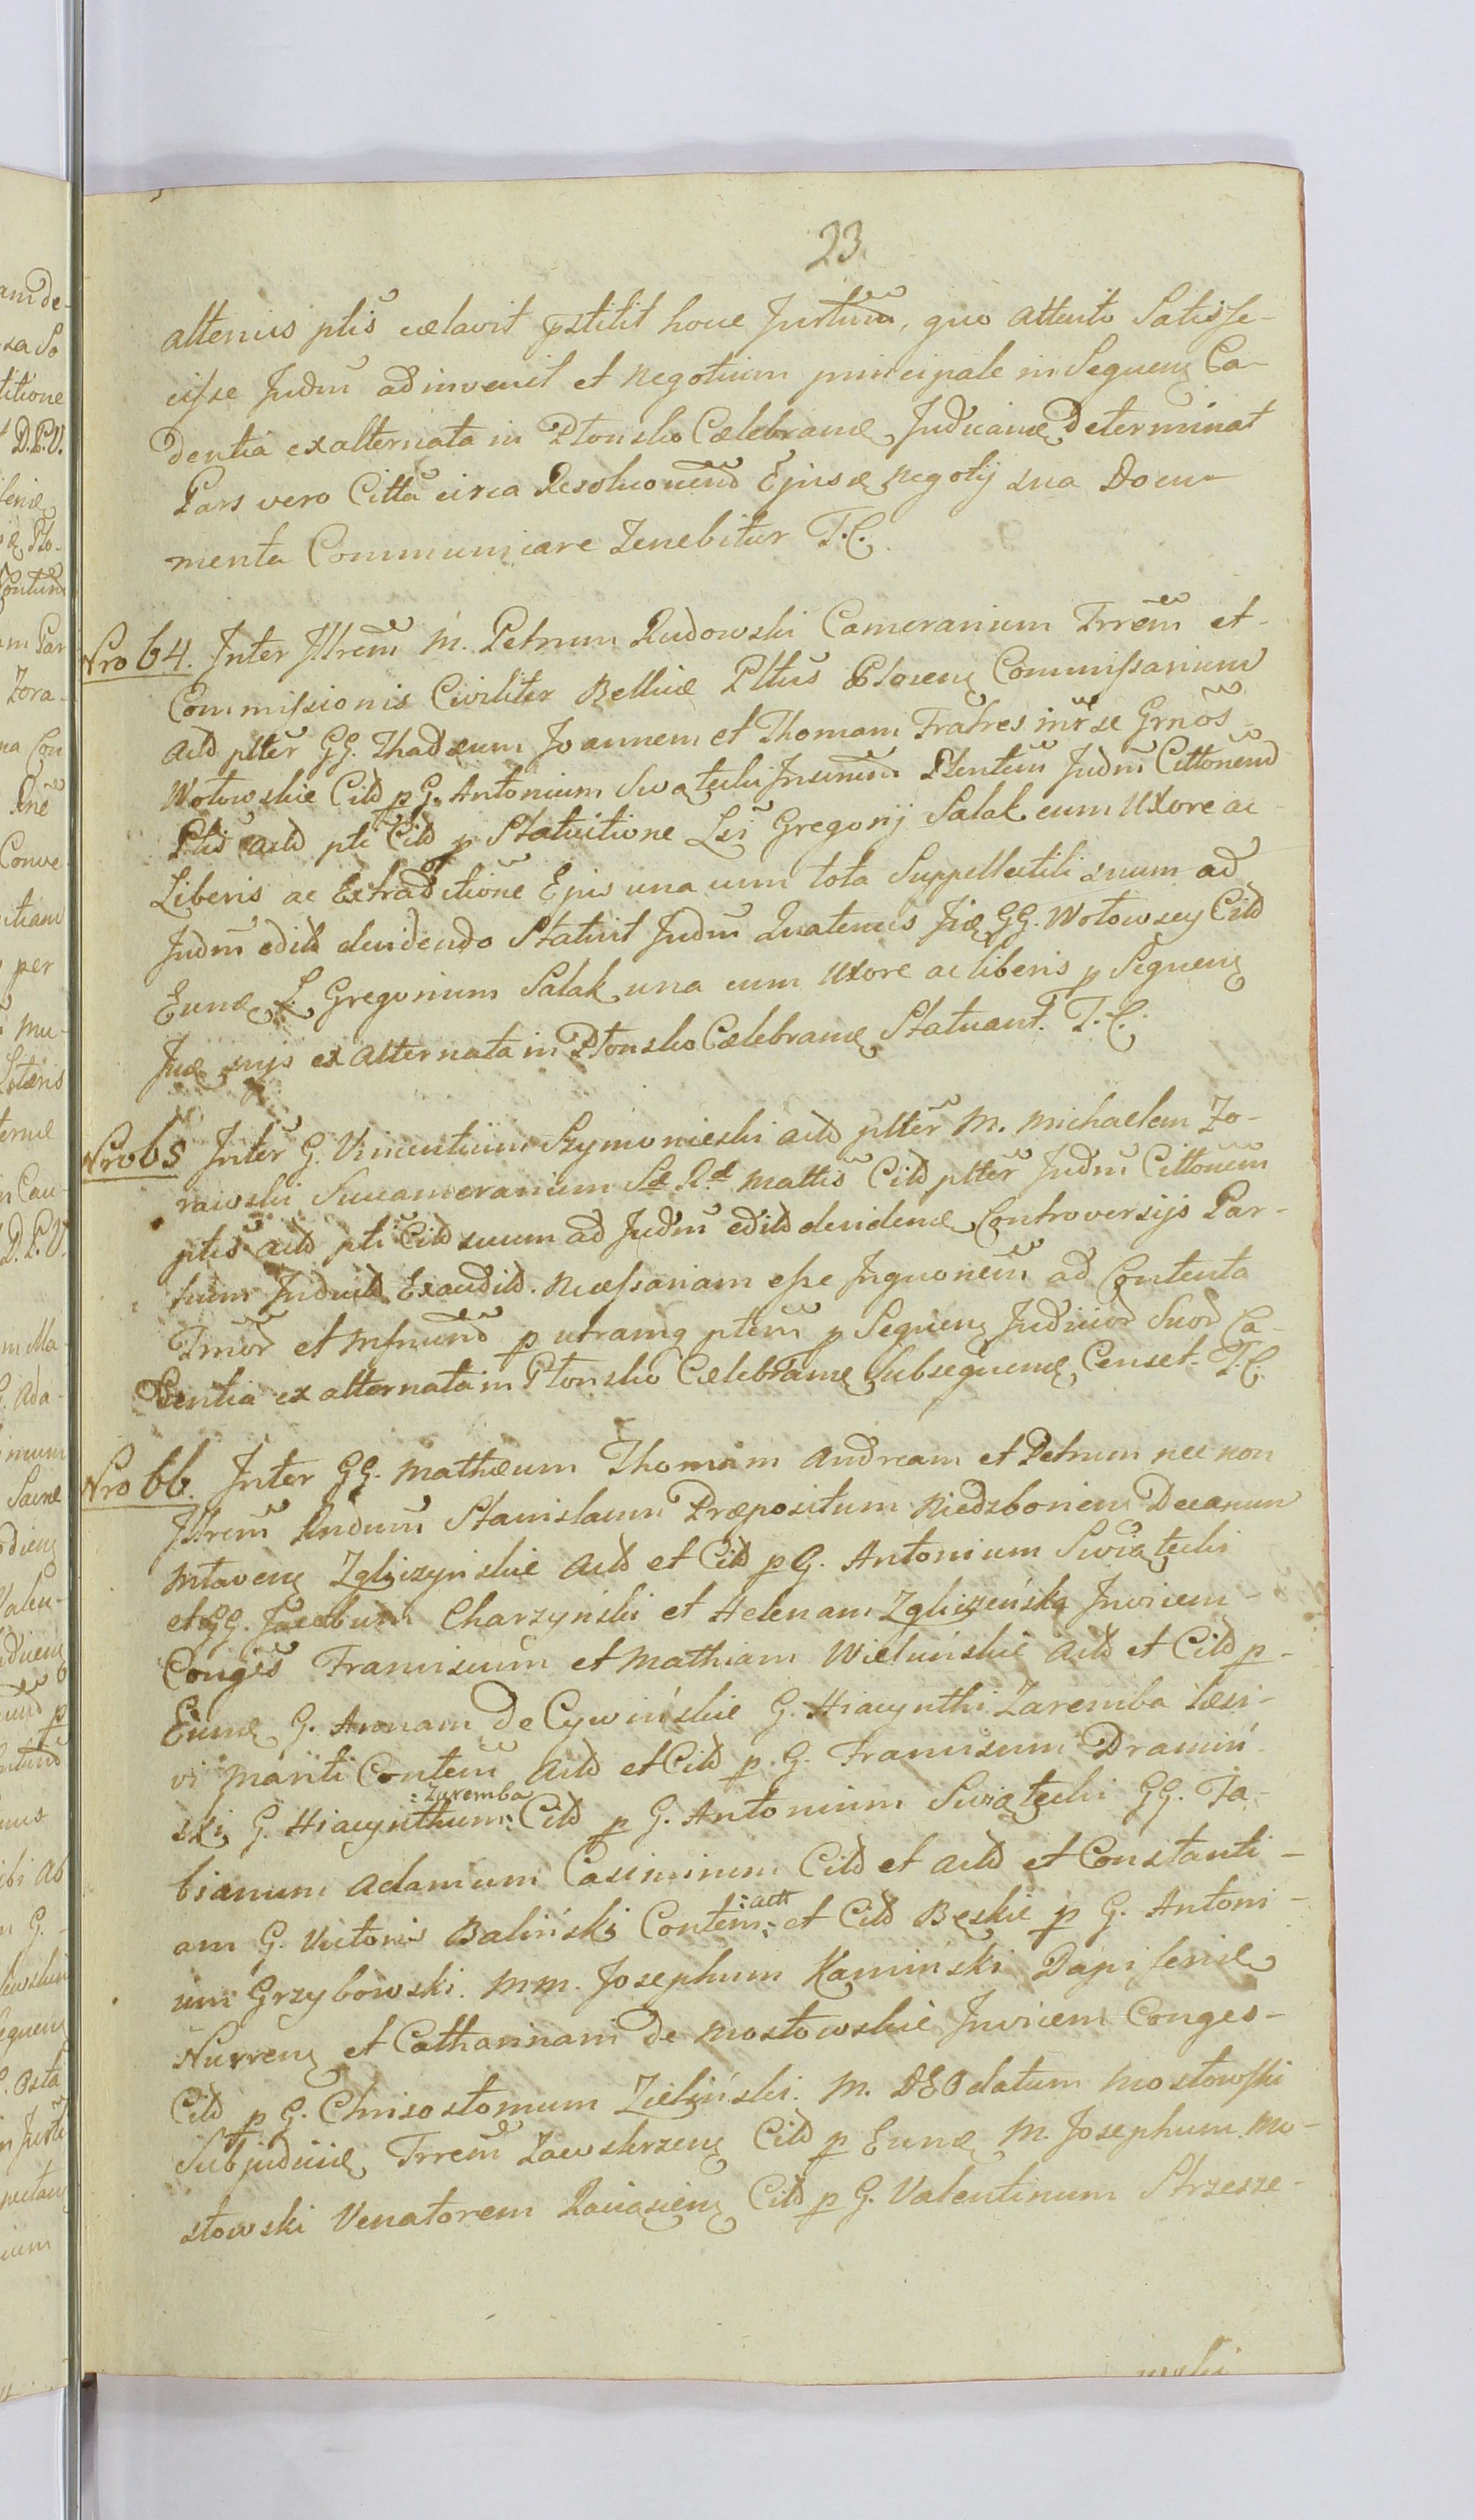 23.
altenius ptis velavit pstitit hove Jurtum, quo attento Satisfe-
cisse Judm adinvenit et negotium principale in Sequen Ca-
dentia exalternata in Płonsko Cælebranæ Judicanæ Determinat
Pars vero Citta circa Resolucionend Ejusæ negotij sua Docu-
menta Communicare Tenebitur T. C.
Nro 64. Inter Jllrem M. Petrum Rudowski Camerarium Trrem et
Commissionis Civiliter Bellicæ Pltus Plocen Commissarium
actd plter GG. Thadæum Joannem et Thomam Fratres intr se Grnos
Wołowskie Citd p G. Antonium Swątecki Jnsinum Plentum Judm Cittonend
Ptis actd pti Citd p Statuitione Lsi Gregorij Salak cum Uxore ac
Liberis ac Extraditione Ejus una cum tota Suppellectili suum ad
Judm edild decidendo Statuit Judm Quatenus Jiæ GG. Wołowscy Citd
Eunæ L. Gregorium Salak una cum Uxore ac liberis p Sequen
Juæ mjs ex alternata in Płonsko Cælebranæ Statuant. T. C.
Nro 65 Inter G. Vincentium Szymonieski actd plter M. Michaelem Zo-
rawski Succamerarium Sæ Rd Mattis Citd plter Judm Cittonem
ptis actd pti Citd suum ad Judm edild decidenæ Controversijs Par-
tium Judicild Exaudild. Necessariam esse Jnquonem ad Contenta
Trmor et Mfmund p utramq ptem p Sequen Judicior Suor Ca-
dentia ex alternata in Płonsko Cælebranæ Subsequenæ Censet. T. C.
Nro 66. Inter GG. Mathæum Thomam Andream et Petrum nec non
Jllrem Rndum Stanislaum Præpositum Niedzborien Decanum
Mławen Zgliczynskie Actd et Citd p G. Antonium Swiątecki
et GG. Jacobum Charzyński et Helenam Zgliczeńska Jnvicem
Conges Franciscum et Mathiam Wieluńskie Actd et Citd p
Eunæ G. Annam de Cywińskie G. Hiacynthi Zaremba læsi-
vi Mariti Contem Actd et Citd p G. Franciscum Dramiń-
ski G. Hiacynthum :Zaremba: Citd p G. Antonium Swiątecki GG. Fa-
bianum Adamum Casimirum Citd et Actd et Constanti-
am G. Victoris Baliński Contem :actt: et Citd Bęskie p G. Antoni-
um Grzybowski. MM. Josephum Kamiński Dapiferiæ
Nurren et Catharinam de Mostowskie Jnvicem Conges-
Citd p G. Chrisostomum Zieliński. M. DEOdatum Mostowski
Subjudiciæ Trrem Zawskrzen Citd p Eunæ M. Josephum Mo-
stowski Venatorem Raciązien Citd p G. Valentinum Strzesze-